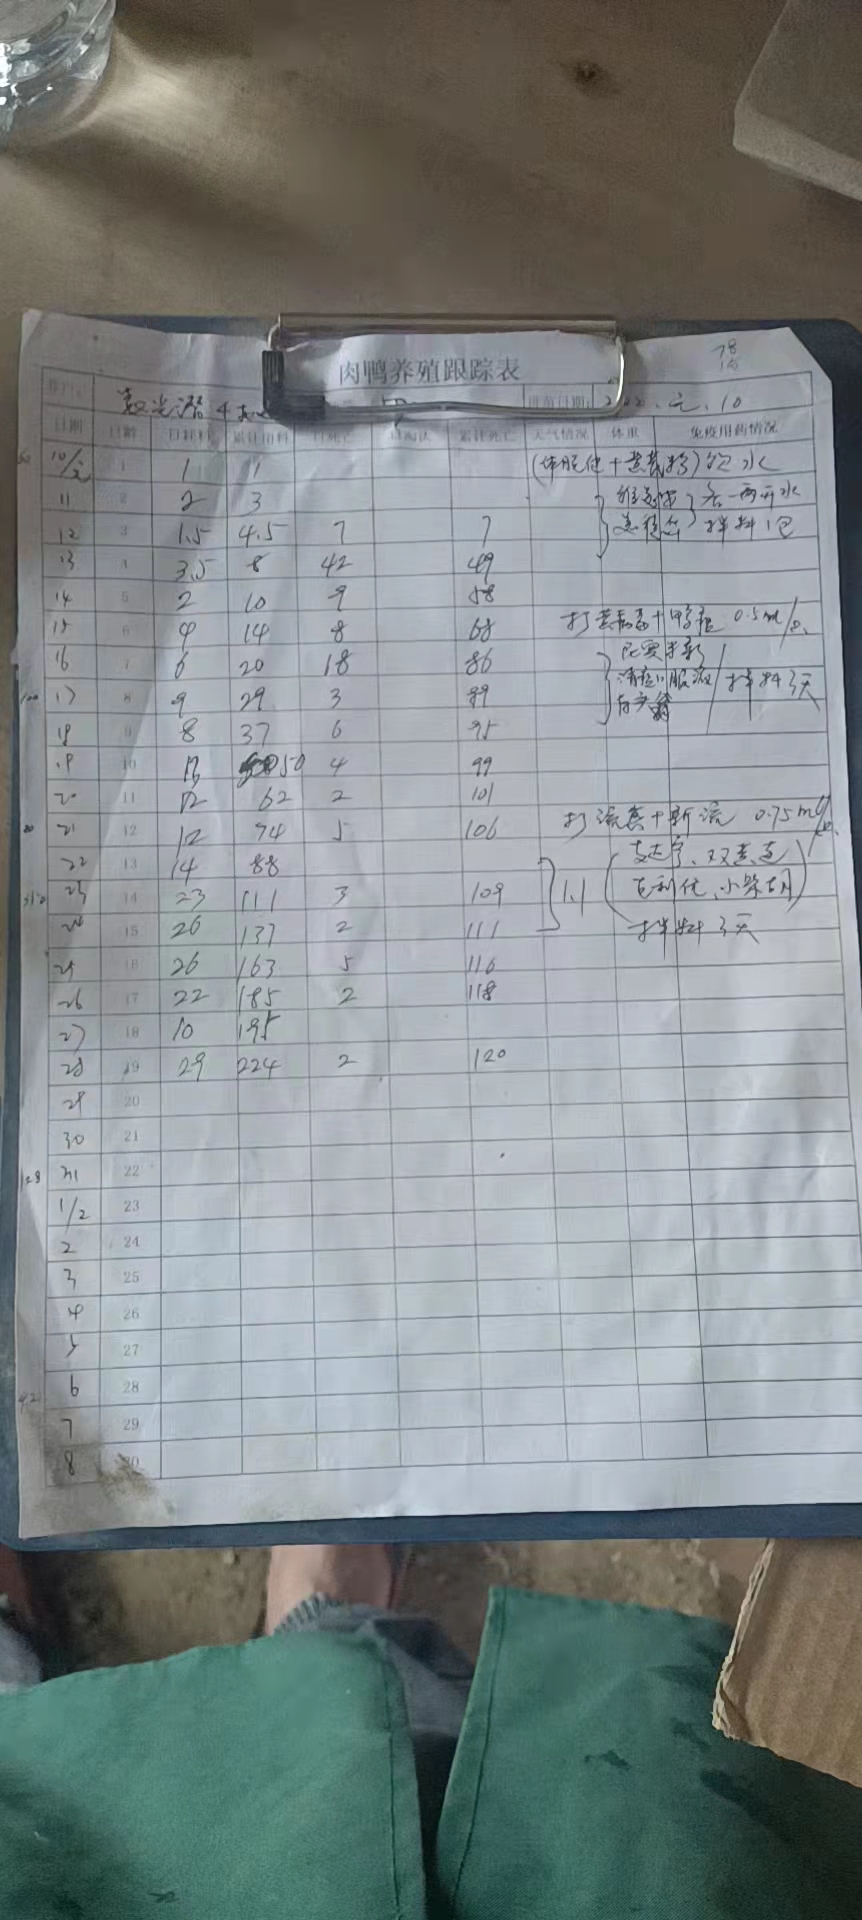 78
肉鸭养殖跟踪表
进苗日期 元.10
日期 日龄 日耗料 累计用料 日死亡 日淘汰 累计死亡 天气情况 体重 免疫用药情况
10/元 1 1 1 (体肥健+黄芪多)饮水
11 2 2 3 水
12 3 1.5 4.5 7 7 拌料1包
13 4 3.5 8 42 49
14 5 2 10 9 58
15 6 4 14 8 68 打 0.5ml/
16 7 6 20 18 86
17 8 9 29 3 89 清瘟 服液 拌料3天
18 9 8 37 6 95
19 10 13 50 4 99
20 11 12 62 2 101
21 12 12 74 5 106 打流感+新流 0.75ml/
22 13 14 88 双黄连
23 14 23 111 3 109 1.1 小柴胡
24 15 26 137 2 111 拌料3天
25 16 26 163 5 116
26 17 22 185 2 118
27 18 10 195
28 19 29 224 2 120
29 20
30 21
31 22
1/2 23
2 24
3 25
4 26
5 27
6 28
7 29
8 30